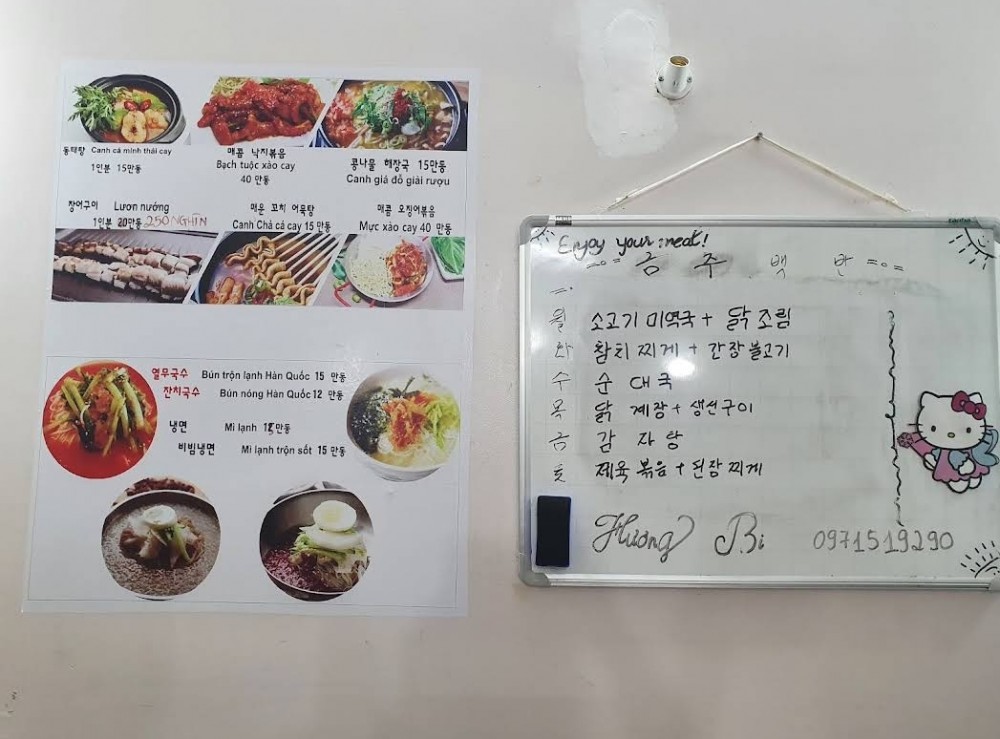 동태탕 Canh cá minh thái cay
1인분 15만동
매콤 낙지볶음
Bạch tuộc xào cay
40 만동
콩나물 해장국 15만동
Canh giá đỗ giải rượu
장어구이 Lươn nướng
1인분 20만동 250 NGHÌN
매운 꼬치 어묵탕
Canh Chả cá cay 15 만동
매콤 오징어볶음
Mực xào cay 40 만동
열무국수 Bún trộn lạnh Hàn Quốc 15 만동
잔치국수 Bún nóng Hàn Quốc 12 만동
냉면 Mì lạnh 15만동
비빔냉면 Mì lạnh trộn sốt 15 만동
Enjoy your meat!
금 주 백 반
월 소고기 미역국 + 닭 조림
화 참치 찌게 + 간장불고기
수 순 대 국
목 닭 계장 + 생선구이
금 감 자 탕
토 제육 볶음 + 된장 찌게
Hương Bi 0971519290